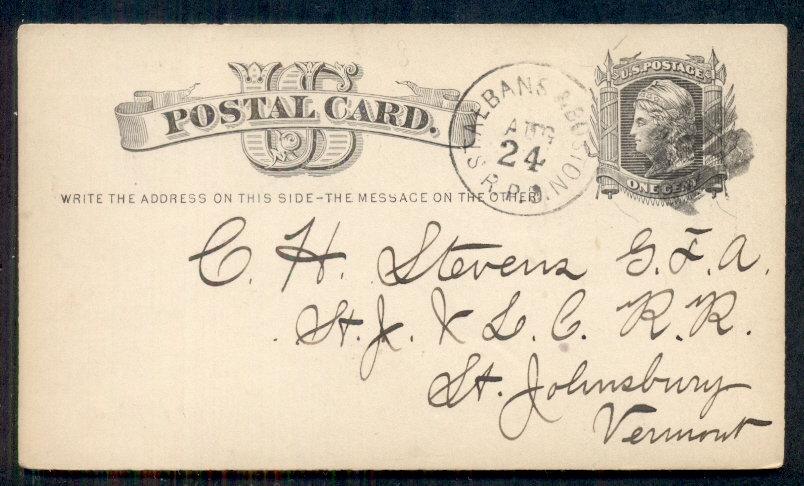 US
POSTAL CARD.
WRITE THE ADDRESS ON THIS SIDE-THE MESSAGE ON THE OTHER
ST. ALBANS & BOSTON
AUG
24
R.P.O.
U.S. POSTAGE
ONE CENT
C. H. Stevens G. F. A.
St. J. & L. C. R. R.
St. Johnsbury
Vermont